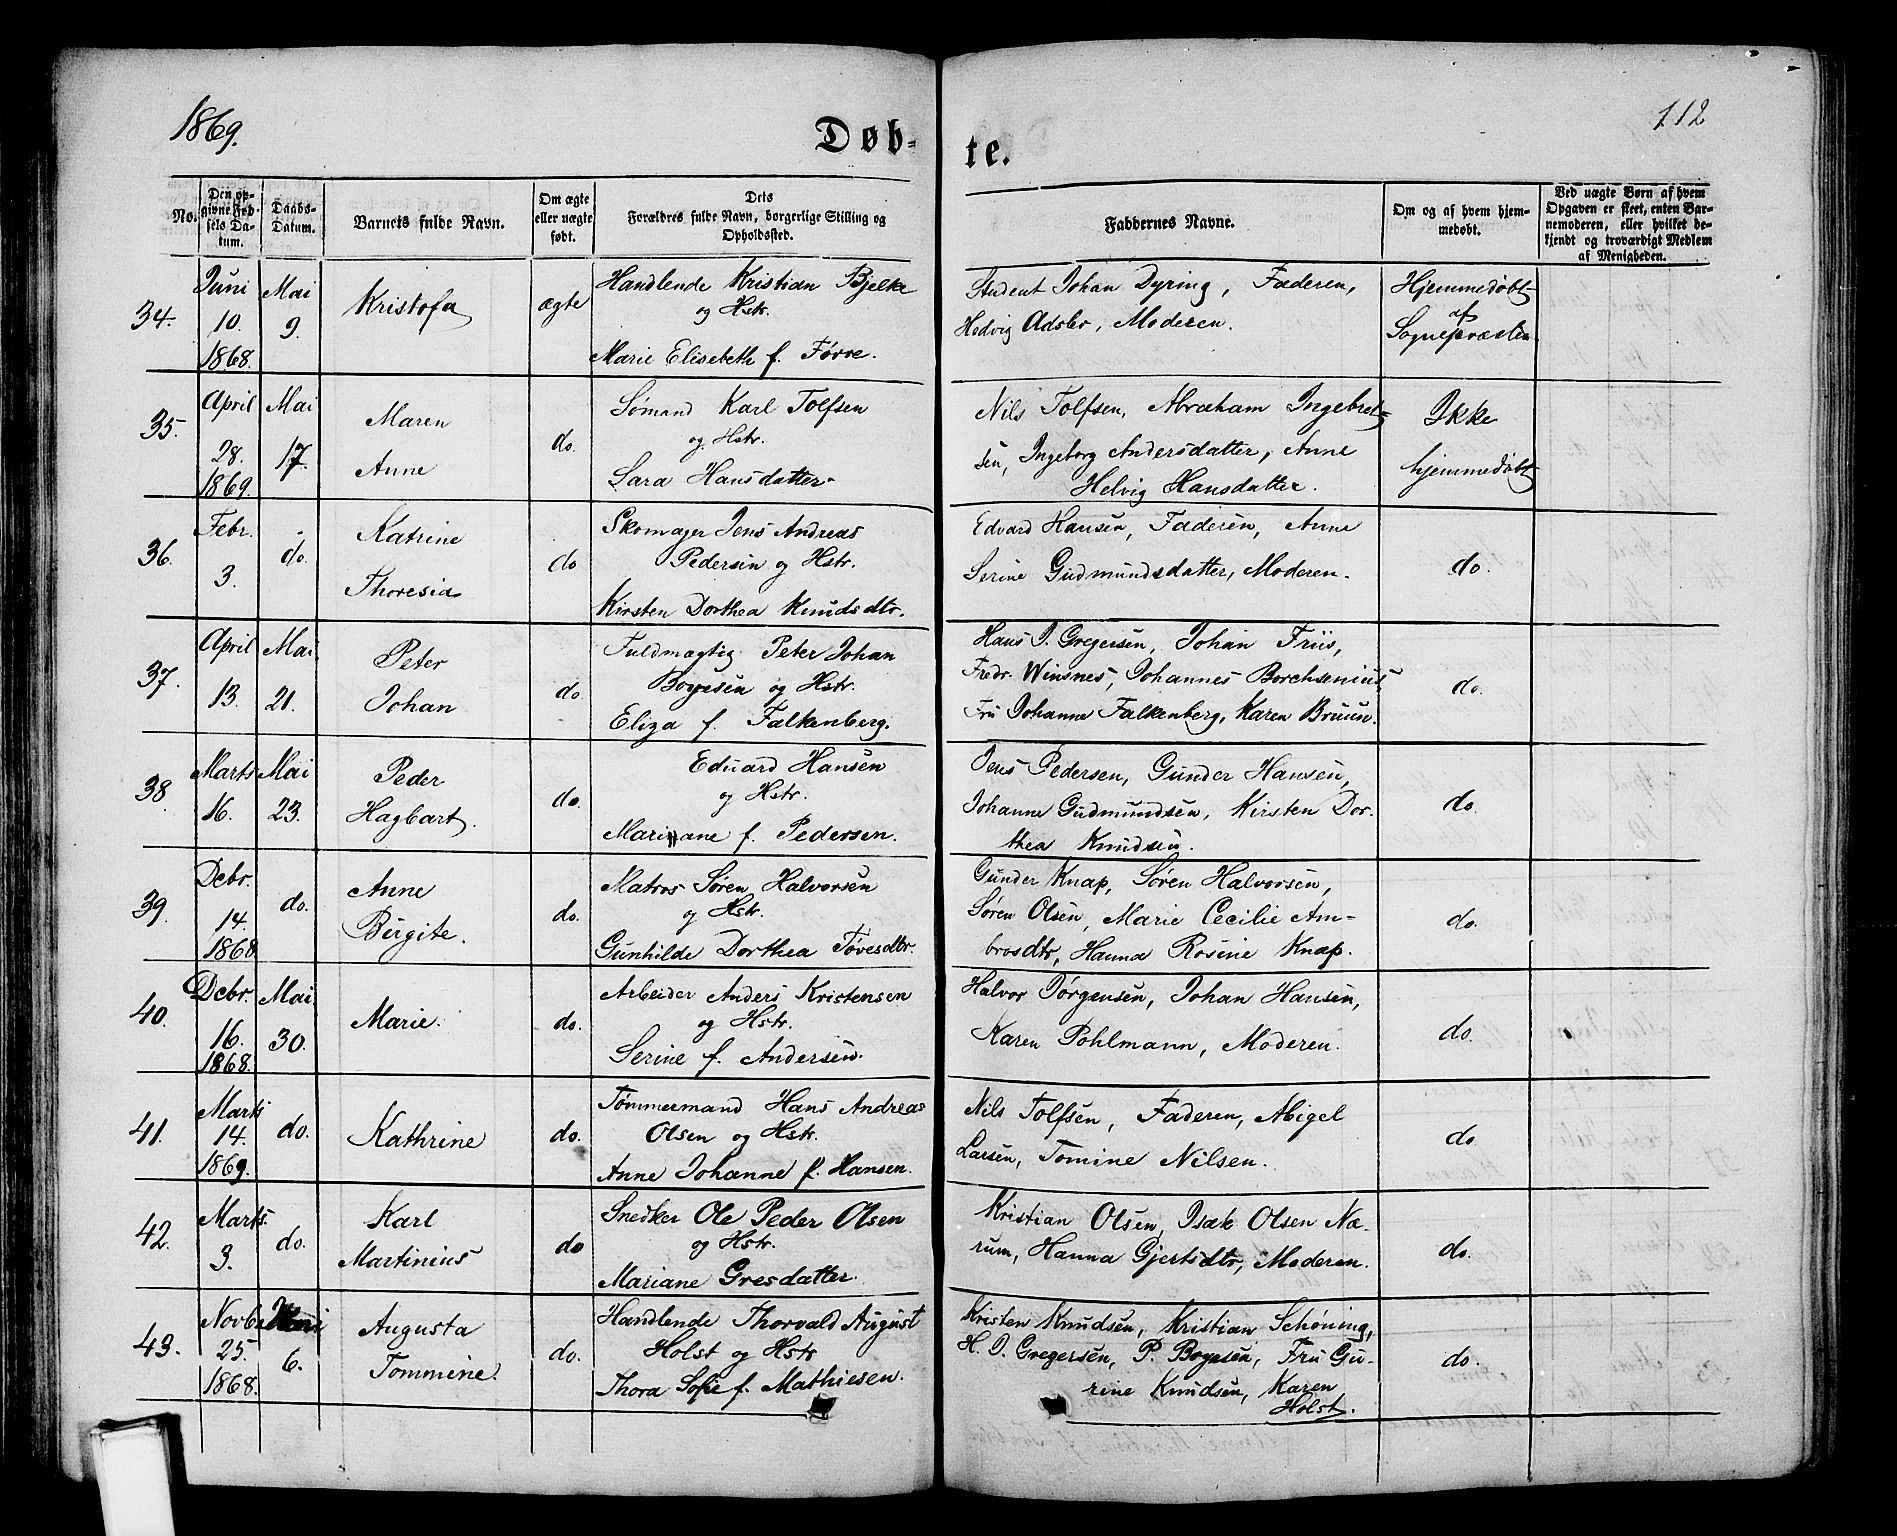 1869.
112
Døb-
te.
No.
Den op-
givne Fød-
sels Da-
tum.
Daabs-
Datum.
Barnets fulde Navn.
Om ægte
eller uægte
født.
Dets
Forældres fulde Navn, borgerlige Stilling og
Opholdssted.
Faddernes Navne.
Om og af hvem hjem-
medøbt.
Ved uægte Børn af hvem
Opgaven er skeet, enten Bar-
nemoderen, eller hvilket be-
kjendt og troværdigt Medlem
af Menigheden.
34.
Juni
10.
1868.
Mai
9.
Kristofa
ægte
Handlende Kristian Bjelke
og Hstr.
Marie Elisebeth f. Førre.
Student Johan Dyring, Faderen,
Hedvig Adsbr, Moderen.
Hjemmedøbt
af
Sognepræsten
35.
April
28.
1869.
Mai
17.
Maren
Anne
do.
Sømand Karl Tolfsen
og Hstr.
Sara Hansdatter.
Nils Tolfsen, Abraham Ingebret-
sen, Ingeborg Andersdatter, Anne
Helvig Hansdatter.
Ikke
hjemmedøbt
36.
Febr.
3.
do.
Katrine
Thoresia
do
Skomager Jens Andreas
Pedersen og Hstr.
Kirsten Dorthea Knudsdtr.
Edvard Hansen, Faderen, Anne
Serine Gudmundsdatter, Moderen.
do.
37.
April
13.
Mai
21.
Peter
Johan
do.
Fuldmægtig Peter Johan
Boyesen og Hstr.
Eliza f. Falkenberg.
Hans J. Gregersen, Johan Friis,
Fredr. Winsnes, Johannes Borchsenius,
Fru Johanne Falkenberg, Karen Bruun.
do.
38.
Marts
16.
Mai
23.
Peder
Hagbart.
do.
Eduard Hansen
og Hstr.
Mariane f. Pedersen.
Jens Pedersen, Gunder Hansen,
Johanne Gudmundsen, Kirsten Dor-
thea Knudsen.
do.
39.
Debr.
14.
1868.
do.
Anne
Birgite.
do.
Matros Søren Halvorsen
og Hstr.
Gunhilde Dorthea Tøvesdtr.
Gunder Knap, Søren Halvorsen,
Søren Olsen, Marie Cecilie Am-
brosdtr, Hanna Rosine Knap.
do.
40.
Debr.
16.
1868.
Mai
30.
Marie.
do.
Arbeider Anders Kristensen
og Hstr.
Serine f. Andersen.
Halvor Jørgensen, Johan Hansen,
Karen Pohlmann, Moderen.
do.
41.
Marts
14.
1869.
do.
Kathrine
do.
Tømmermand Hans Andreas
Olsen og Hstr.
Anne Johanne f. Hansen.
Nils Tolfsen, Faderen, Abigel
Larsen, Tomine Nilsen.
do.
42.
Marts.
3.
do.
Karl
Martinius
do
Snedker Ole Peder Olsen
og Hstr.
Mariane Gresdatter.
Kristian Olsen, Isak Olsen Næ-
rum, Hanna Gjertsdtr, Moderen.
do.
43.
Novbr.
25.
1868.
Juni
6.
Augusta
Tommine.
do.
Handlende Thorvald August
Holst og Hstr
Thora Sofie f. Mathiesen.
Kristen Knudsen, Kristian Schøning,
H. J. Gregersen, P. Boyesen, Fru Gu-
rine Knudsen, Karen
Holst.
do.